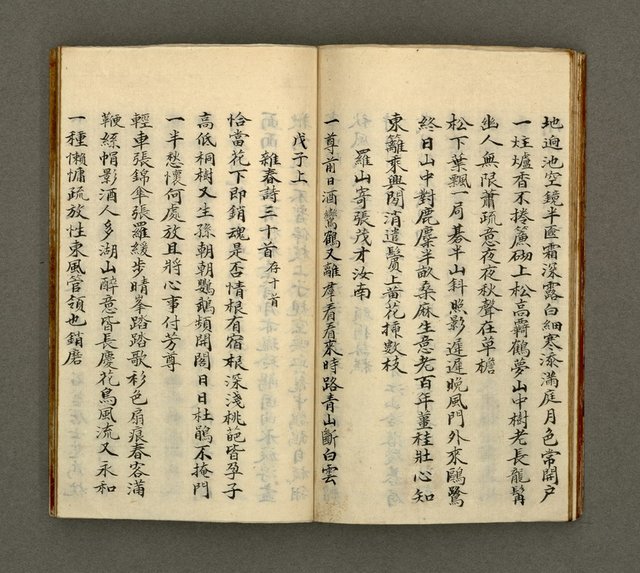 地迥池空鏡半匳霜深露白細寒添滿庭月色常開戶
一炷爐香不捲簾砌上松高霸鶴夢山中樹老長龍髯
幽人無限蕭疏意夜夜秋聲在草檐
松下葉飄一局碁半山斜照影遲遲晚風門外來鷗鷺
終日山中對鹿麋半畝桑麻生意老百年薑桂壯心知
東籬乘興閒消遣鬢上黃花揷數枝
羅山寄張茂才汝南
一尊前日酒鸞鶴又離羣看看來時路青山斷白雲
戊子上
雜春詩三十首存十首
恰當花下即銷魂是否情根有宿根深淺桃葩皆孕子
高低桐樹又生孫朝朝鸚鵡頻開閣日日杜鵑不掩門
一半愁懷何處放且將心事付芳尊
輕車張錦傘張羅緩步晴峯踏踏歌衫色扇痕春客滿
鞭絲帽影酒人多湖山醉意昏長慶花鳥風流又永和
一種懶慵疏放性東風管領也銷磨